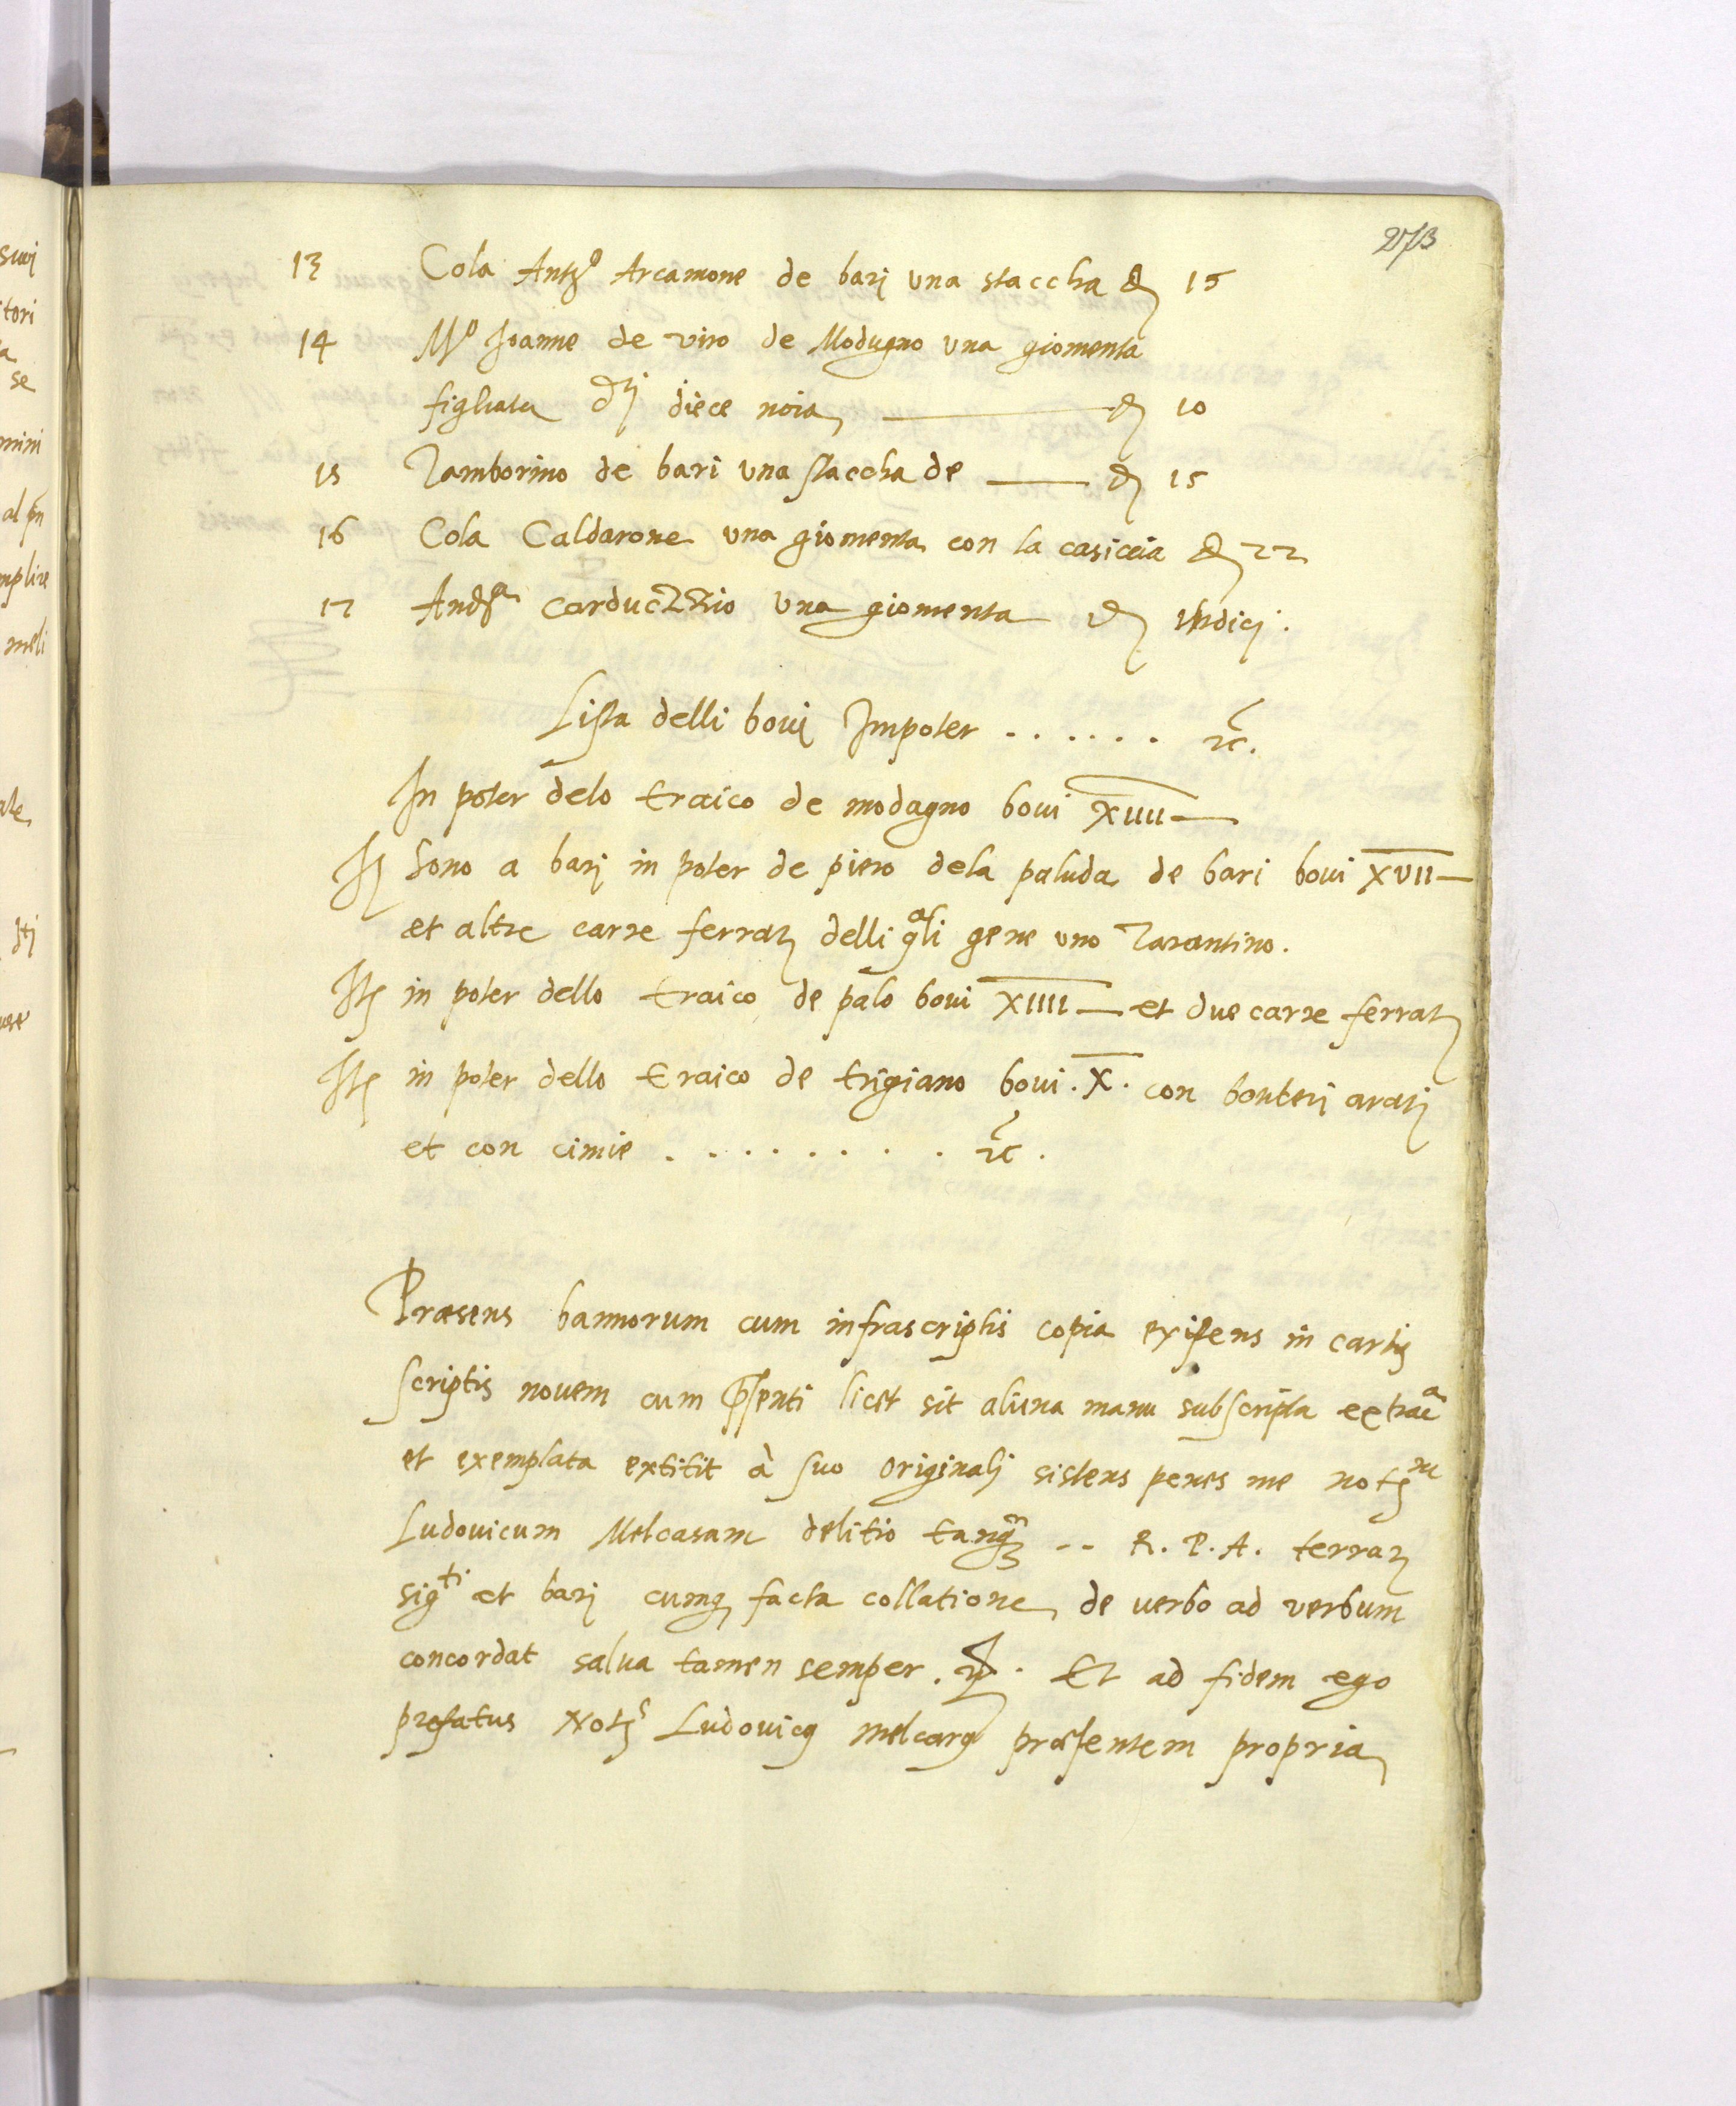 273
13 Cola Antᵒ Arcamone de barj una staccha d. 15
14 Mᵒ Joanne de viro de Modugno una giomenta
figliata dtj diece noia d. 10
15 Tamborino de bari una staccha de d. 15
16 Cola Caldarone una giomenta con la casiccia d. 22
17 Andrª una giomenta d. undicj.
Lista delli bovi Impoter ...... etc.
In poter delo traico de modugno bovi XIIII
It sono a barj in poter de piero dela paluda de bari bovi XVII
et altre carre ferrat delli qªli gene uno Tarantino.
Itē in poter dello traico de palo bovi XIIII et due carre ferrat
Itē in poter dello traico de trigiano bovi .X. con aratj
et con cimie ......... etc.
Præsens bannorum cum infrascriptis copia existens in cartis
scriptis novem cum p̄senti licet sit aliena manu subscripta extracᵃ
et exemplata extitit à suo originalj sistens penes me notᵐ
Ludovicum Melcasam -- R. P. A. terrar
et barj cumq facta collatione de verbo ad verbum
concordat salva tamen semper. Et ad fidem ego
prefatus Notˢ Ludovicꝰ præsentem propria